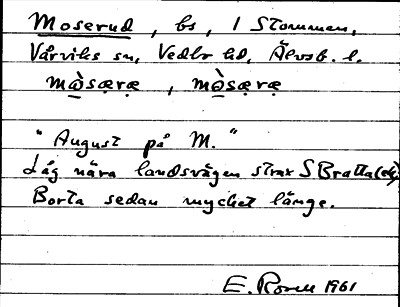 Moserud, bs, l Stommen,
Vårviks sn, Vedbo hd, Älvsb. l.
mɷ̀særæ, mɷ̀særæ
"August på M."
Låg nära landsvägen strax S Bratta
Borta sedan mycket länge.
E. Rosell 1961